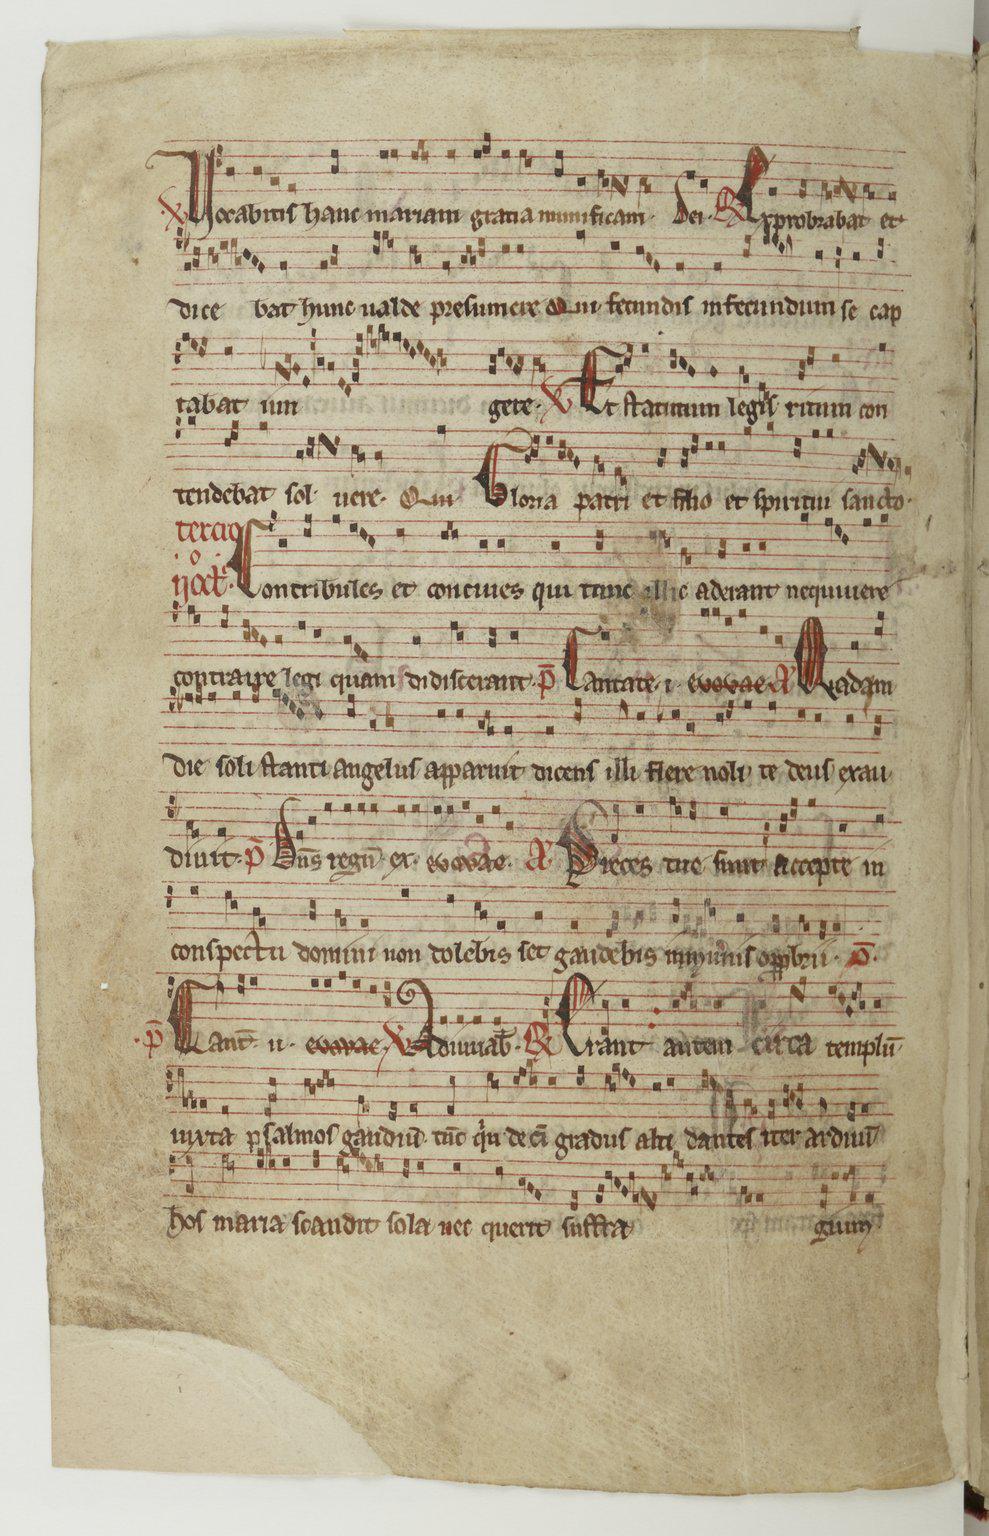 V Vocabitis hanc mariam gratia munificam. dei. R Exprobrabat et
dice bat hunc ualde presumere Qui fecundis infecundum se cap
tabat iun gere. V Et statutum legis ritum con
tendebat sol uere. Qui Gloria patri et filio et spiritui sancto.
tercio
noct. Contribules et conciues qui tunc illic aderant nequiuere
contraire legi quam didiscerant. p Cantate. i. evovae. A Quadam
die soli stanti angelus apparuit dicens illi flere noli te deus exau
diuit. p Dns regn ex. evovae. A Preces tue sunt accepte in
conspectu domini non dolebis set gaudebis opprobrii. p.
p Cant. ii. evovae. V Adiuuab. R Erant autem circa templu
iuxta psalmos gradus alti dantes iter arduu
hos maria scandit sola nec querit suffra gium